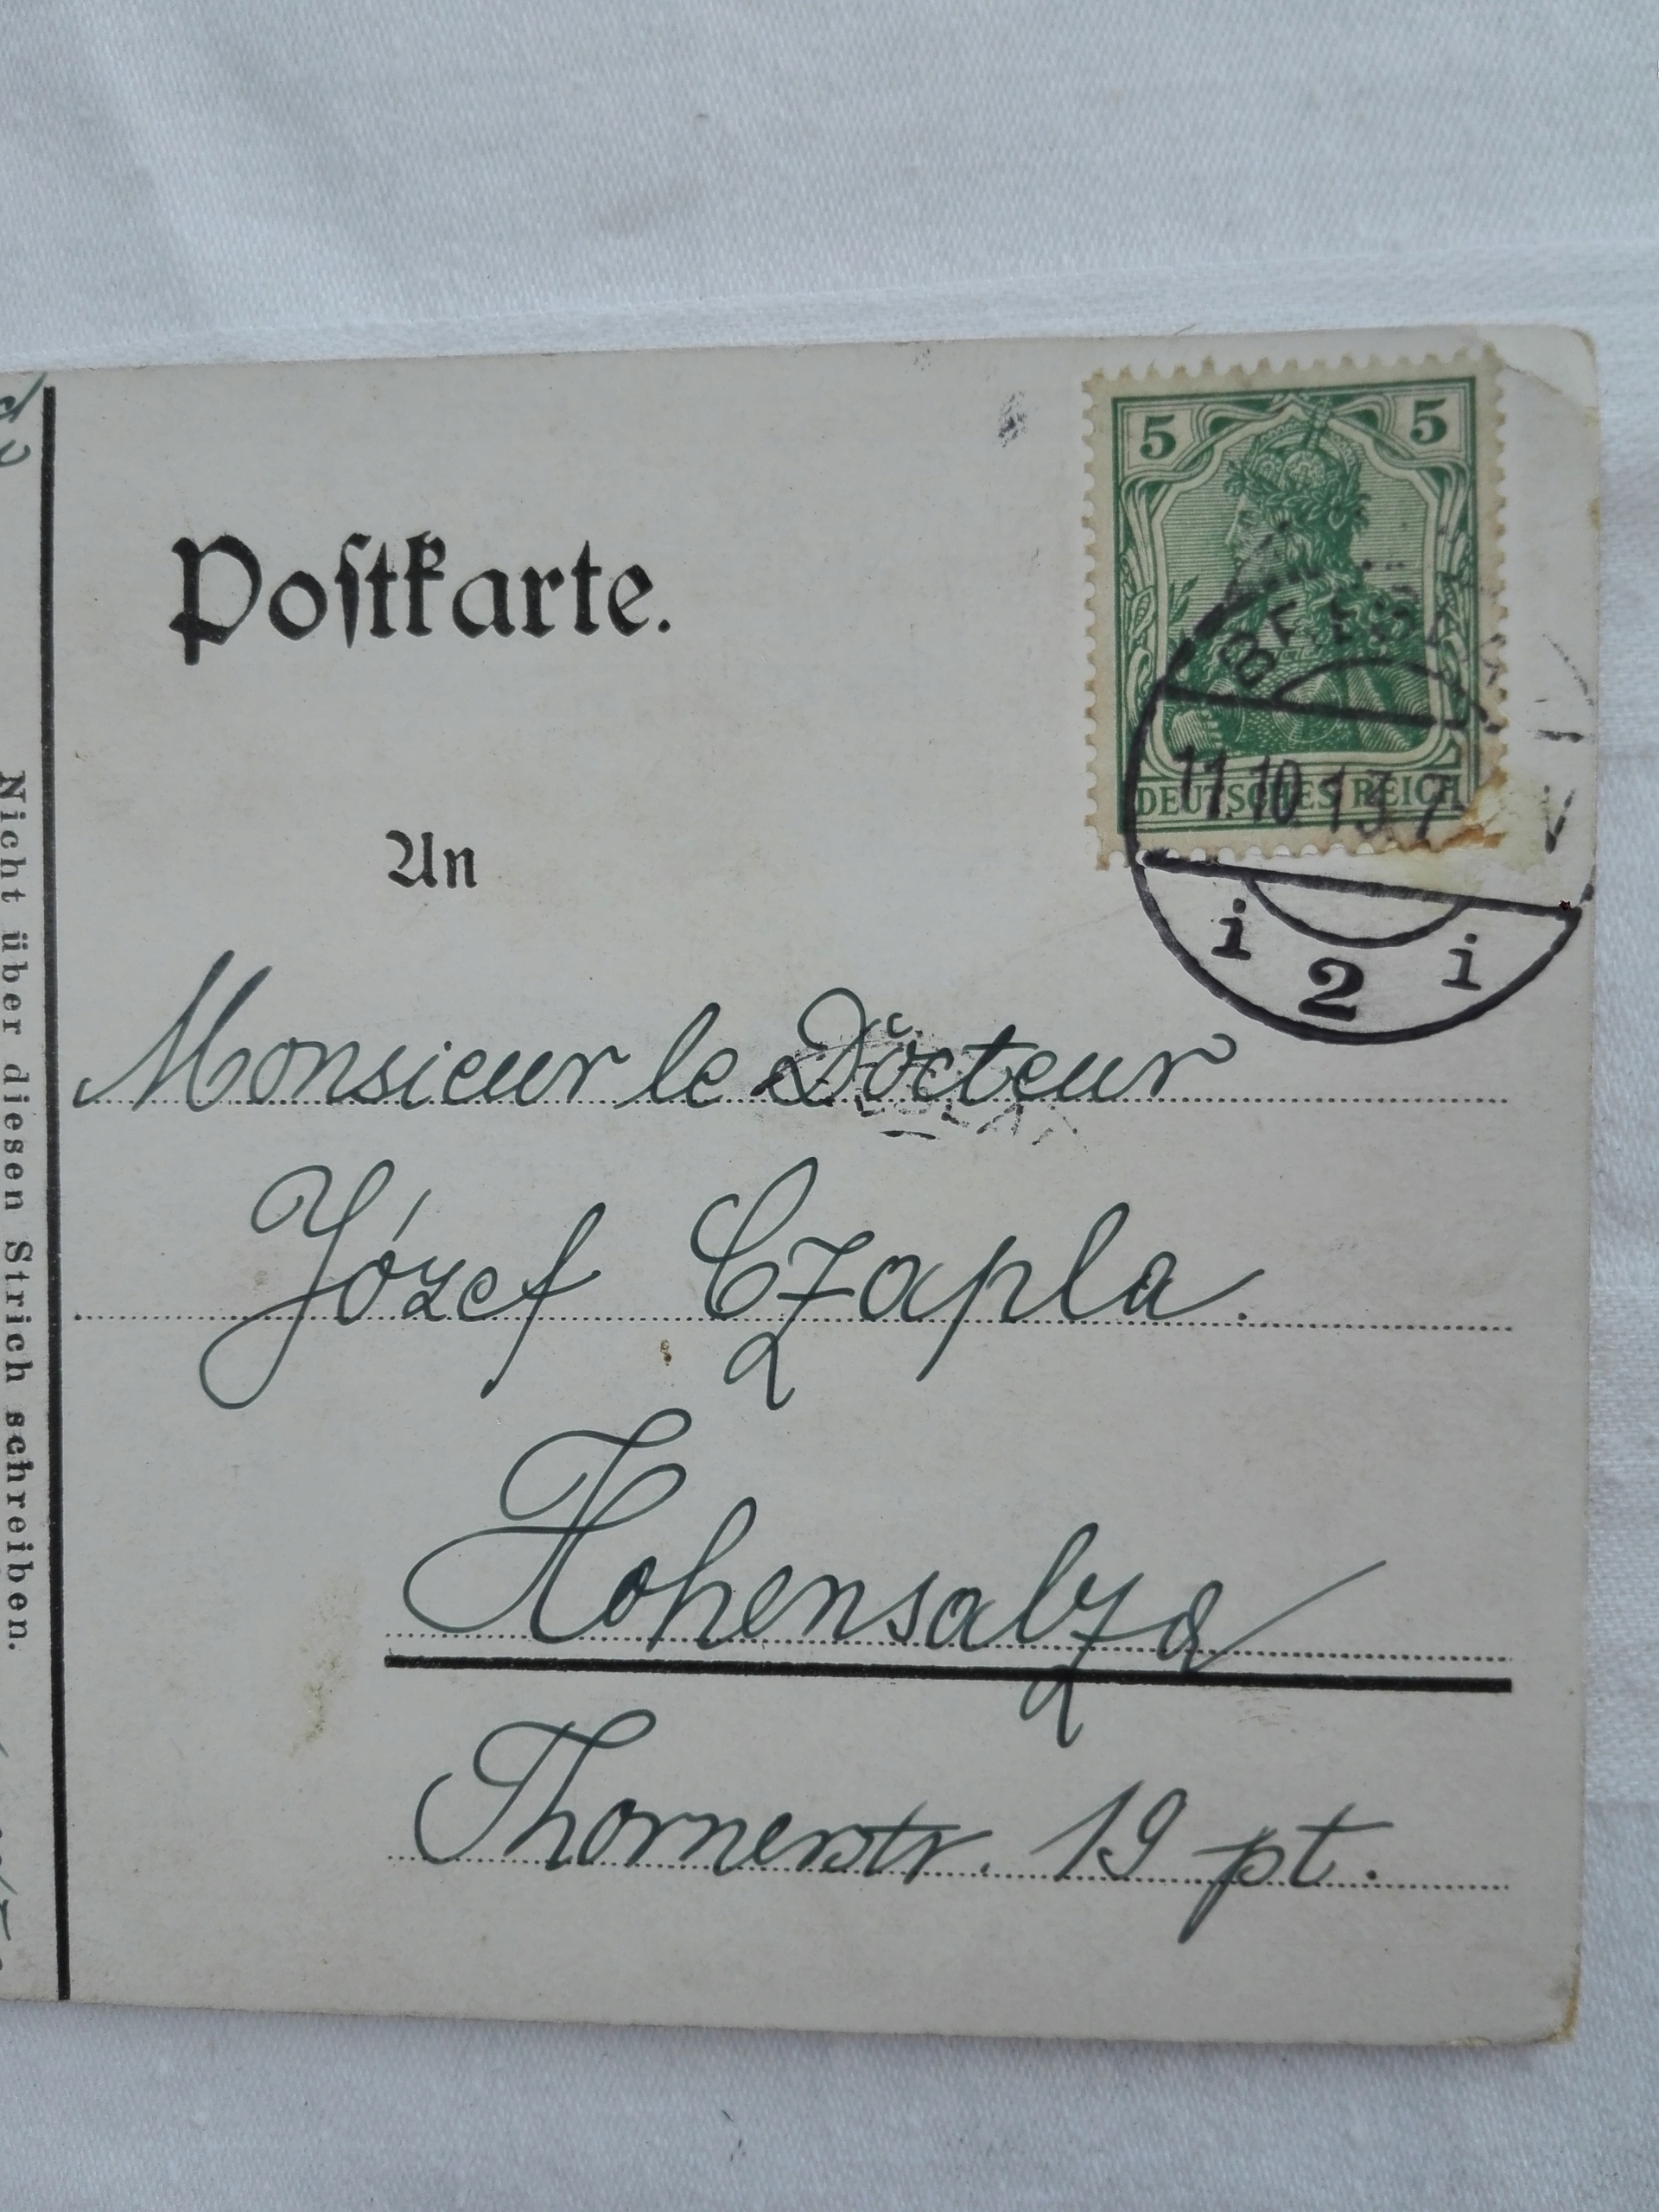 5 5
DEUTSCHES REICH
BRESL
11.10.13.7
i 2 i
Poſtkarte.
An
Monsieur le Docteur
Józef Czapla.
Hohensalza
Thornerstr. 19 pt.
Nicht über diesen Strich schreiben.